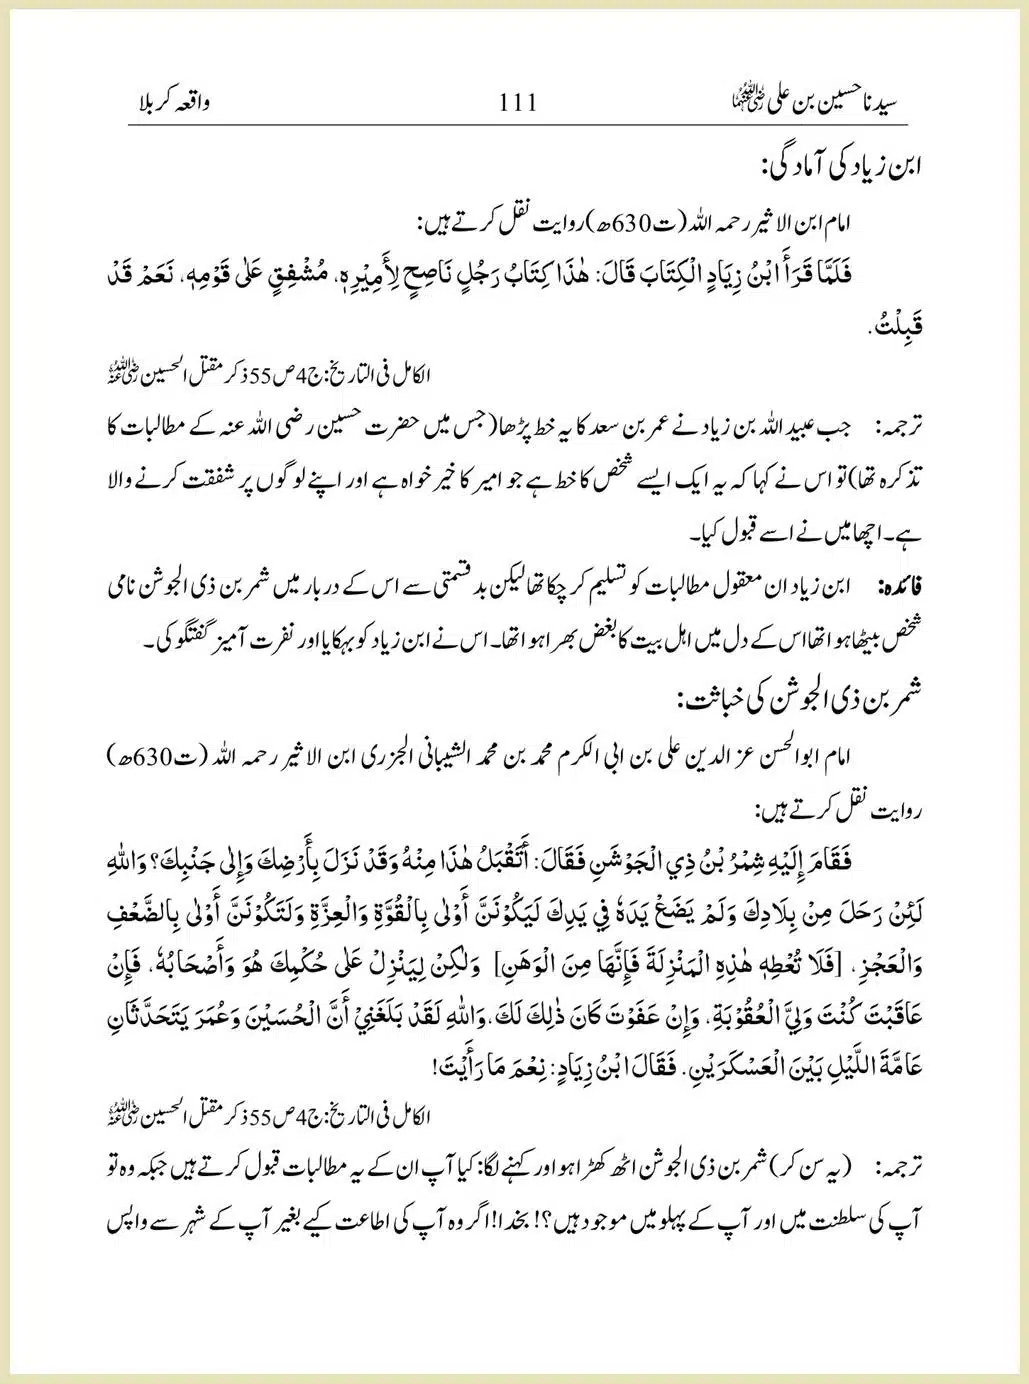 سیدنا حسین بن علی رضی اللہ عنہما 111 واقعہ کربلا
ابن زیاد کی آمادگی:
امام ابن الاثیر رحمہ اللہ (ت630ھ) روایت نقل کرتے ہیں:
فَلَمَّا قَرَأَ ابْنُ زِيَادٍ الْكِتَابَ قَالَ: هٰذَا كِتَابُ رَجُلٍ نَاصِحٍ لِأَمِيْرِهٖ، مُشْفِقٍ عَلٰى قَوْمِهٖ، نَعَمْ قَدْ
قَبِلْتُ.
الکامل فی التاریخ: ج4 ص55 ذکر مقتل الحسین رضی اللہ عنہ
ترجمہ: جب عبید اللہ بن زیاد نے عمر بن سعد کا یہ خط پڑھا (جس میں حضرت حسین رضی اللہ عنہ کے مطالبات کا
تذکرہ تھا) تو اس نے کہا کہ یہ ایک ایسے شخص کا خط ہے جو امیر کا خیر خواہ ہے اور اپنے لوگوں پر شفقت کرنے والا
ہے۔ اچھا میں نے اسے قبول کیا۔
فائدہ: ابن زیاد ان معقول مطالبات کو تسلیم کر چکا تھا لیکن بد قسمتی سے اس کے دربار میں شمر بن ذی الجوشن نامی
شخص بیٹھا ہوا تھا اس کے دل میں اہل بیت کا بغض بھرا ہوا تھا۔ اس نے ابن زیاد کو بہکایا اور نفرت آمیز گفتگو کی۔
شمر بن ذی الجوشن کی خباثت:
امام ابو الحسن عز الدین علی بن ابی الکرم محمد بن محمد الشیبانی الجزری ابن الاثیر رحمہ اللہ (ت630ھ)
روایت نقل کرتے ہیں:
فَقَامَ إِلَيْهِ شِمْرُ بْنُ ذِي الْجَوْشَنِ فَقَالَ: أَتَقْبَلُ هٰذَا مِنْهُ وَقَدْ نَزَلَ بِأَرْضِكَ وَإِلٰى جَنْبِكَ؟ وَاللّٰهِ
لَئِنْ رَحَلَ مِنْ بِلَادِكَ وَلَمْ يَضَعْ يَدَهٗ فِي يَدِكَ لَيَكُوْنَنَّ أَوْلٰى بِالْقُوَّةِ وَالْعِزَّةِ وَلَتَكُوْنَنَّ أَوْلٰى بِالضَّعْفِ
وَالْعَجْزِ، [فَلَا تُعْطِهٖ هٰذِهِ الْمَنْزِلَةَ فَإِنَّهَا مِنَ الْوَهَنِ] وَلٰكِنْ لِيَنْزِلْ عَلٰى حُكْمِكَ هُوَ وَأَصْحَابُهٗ، فَإِنْ
عَاقَبْتَ كُنْتَ وَلِيَّ الْعُقُوْبَةِ، وَإِنْ عَفَوْتَ كَانَ ذٰلِكَ لَكَ، وَاللّٰهِ لَقَدْ بَلَغَنِيْ أَنَّ الْحُسَيْنَ وَعُمَرَ يَتَحَدَّثَانِ
عَامَّةَ اللَّيْلِ بَيْنَ الْعَسْكَرَيْنِ. فَقَالَ ابْنُ زِيَادٍ: نِعْمَ مَا رَأَيْتَ!
الکامل فی التاریخ: ج4 ص55 ذکر مقتل الحسین رضی اللہ عنہ
ترجمہ: (یہ سن کر) شمر بن ذی الجوشن اٹھ کھڑا ہوا اور کہنے لگا: کیا آپ ان کے یہ مطالبات قبول کرتے ہیں جبکہ وہ تو
آپ کی سلطنت میں اور آپ کے پہلو میں موجود ہیں؟! بخدا! اگر وہ آپ کی اطاعت کیے بغیر آپ کے شہر سے واپس